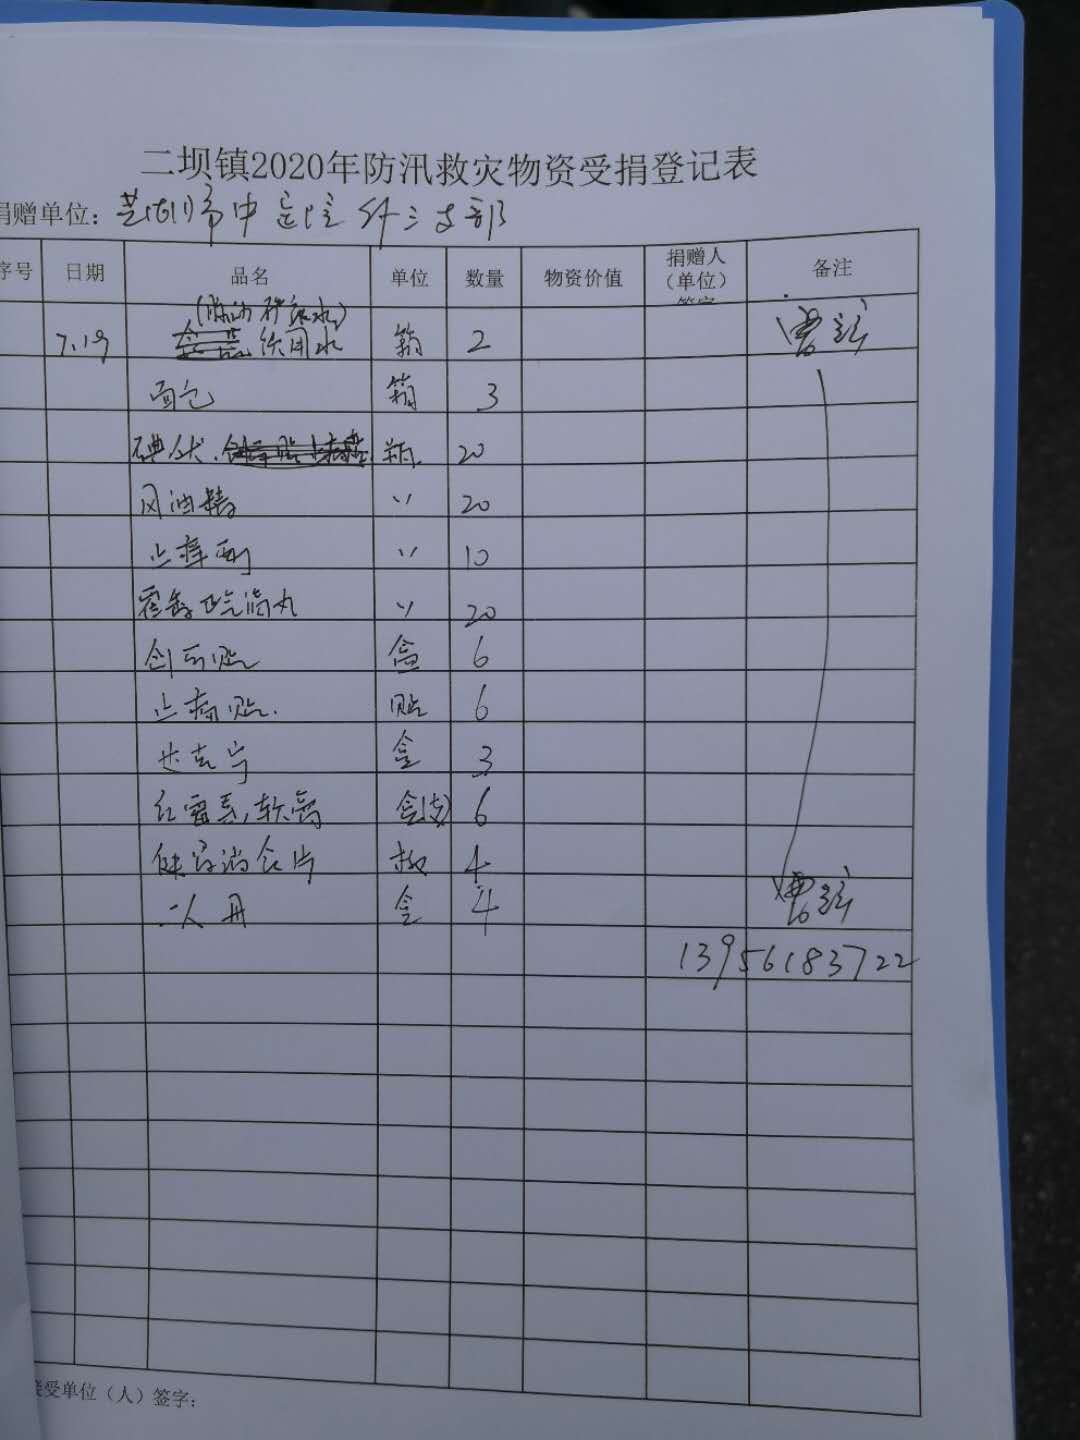 二坝镇2020年防汛救灾物资受捐登记表
捐赠单位：芜湖市中医院外三支部
序号 日期 品名 单位 数量 物资价值 捐赠人（单位）签字 备注
7.19 饮用水 箱 2
面包 箱 3
碘伏 瓶 20
风油精 〃 20
止痒 〃 10
藿香正气滴丸 〃 20
创可贴 盒 6
止痛贴. 贴 6
达克宁 盒 3
红霉素软膏 盒(支) 6
健胃消食片 板 4
人丹 盒 4
13956183722
接受单位（人）签字：